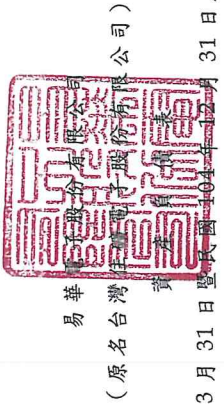 易華電子股份有限公司
（原名台灣住礦電子股份有限公司）
資產負債表
3 月 31 日暨民國 104 年 12 月 31 日